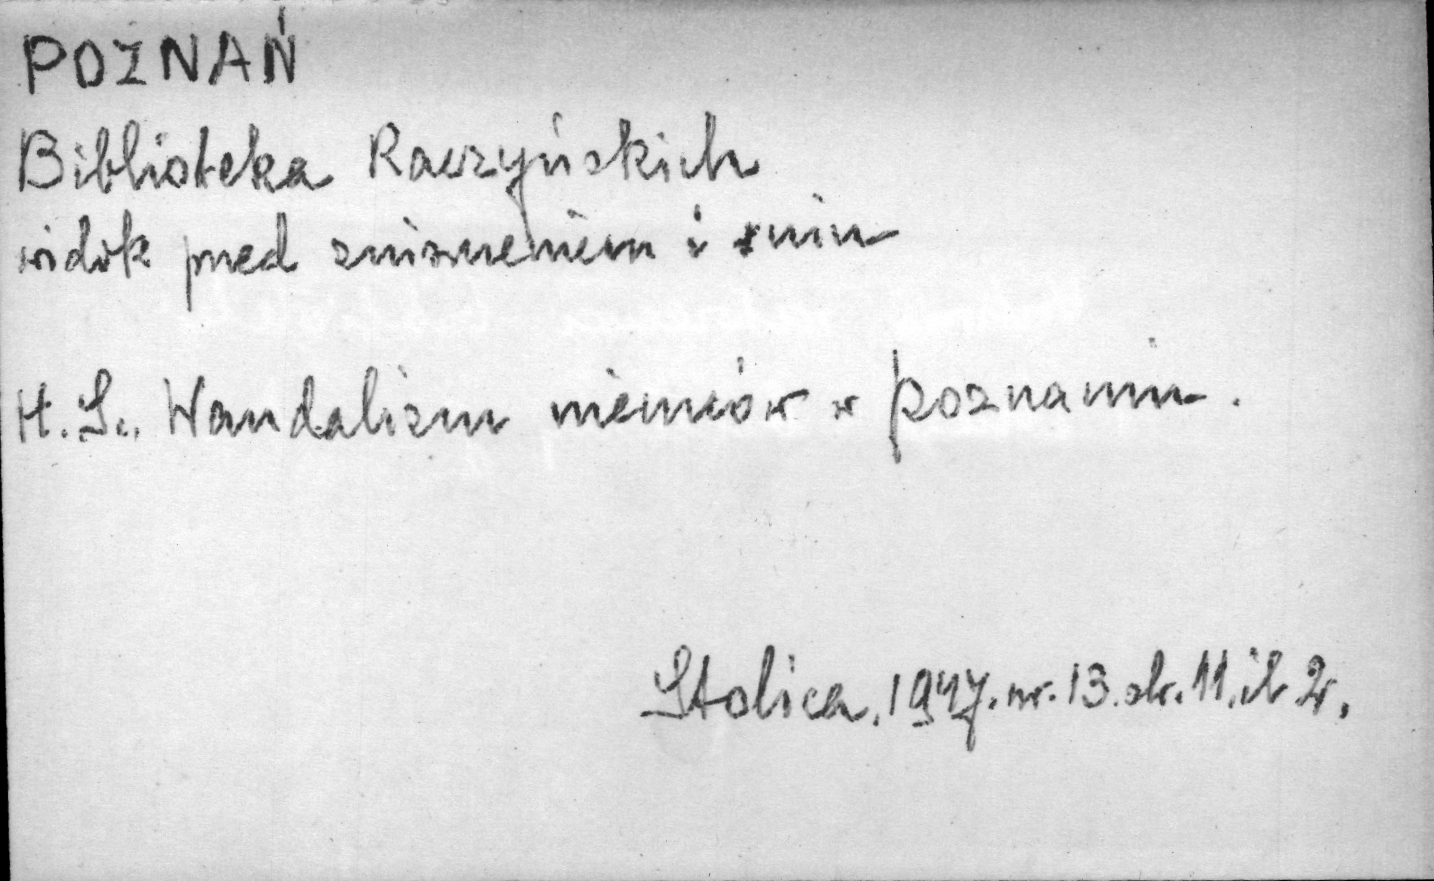 POZNAŃ
Biblioteka Raczyńskich
widok przed zniszczeniem i ruin
H.S., Wandalizm niemców w poznaniu.
Stolica, 1947. nr. 13. str. 11. il 2.